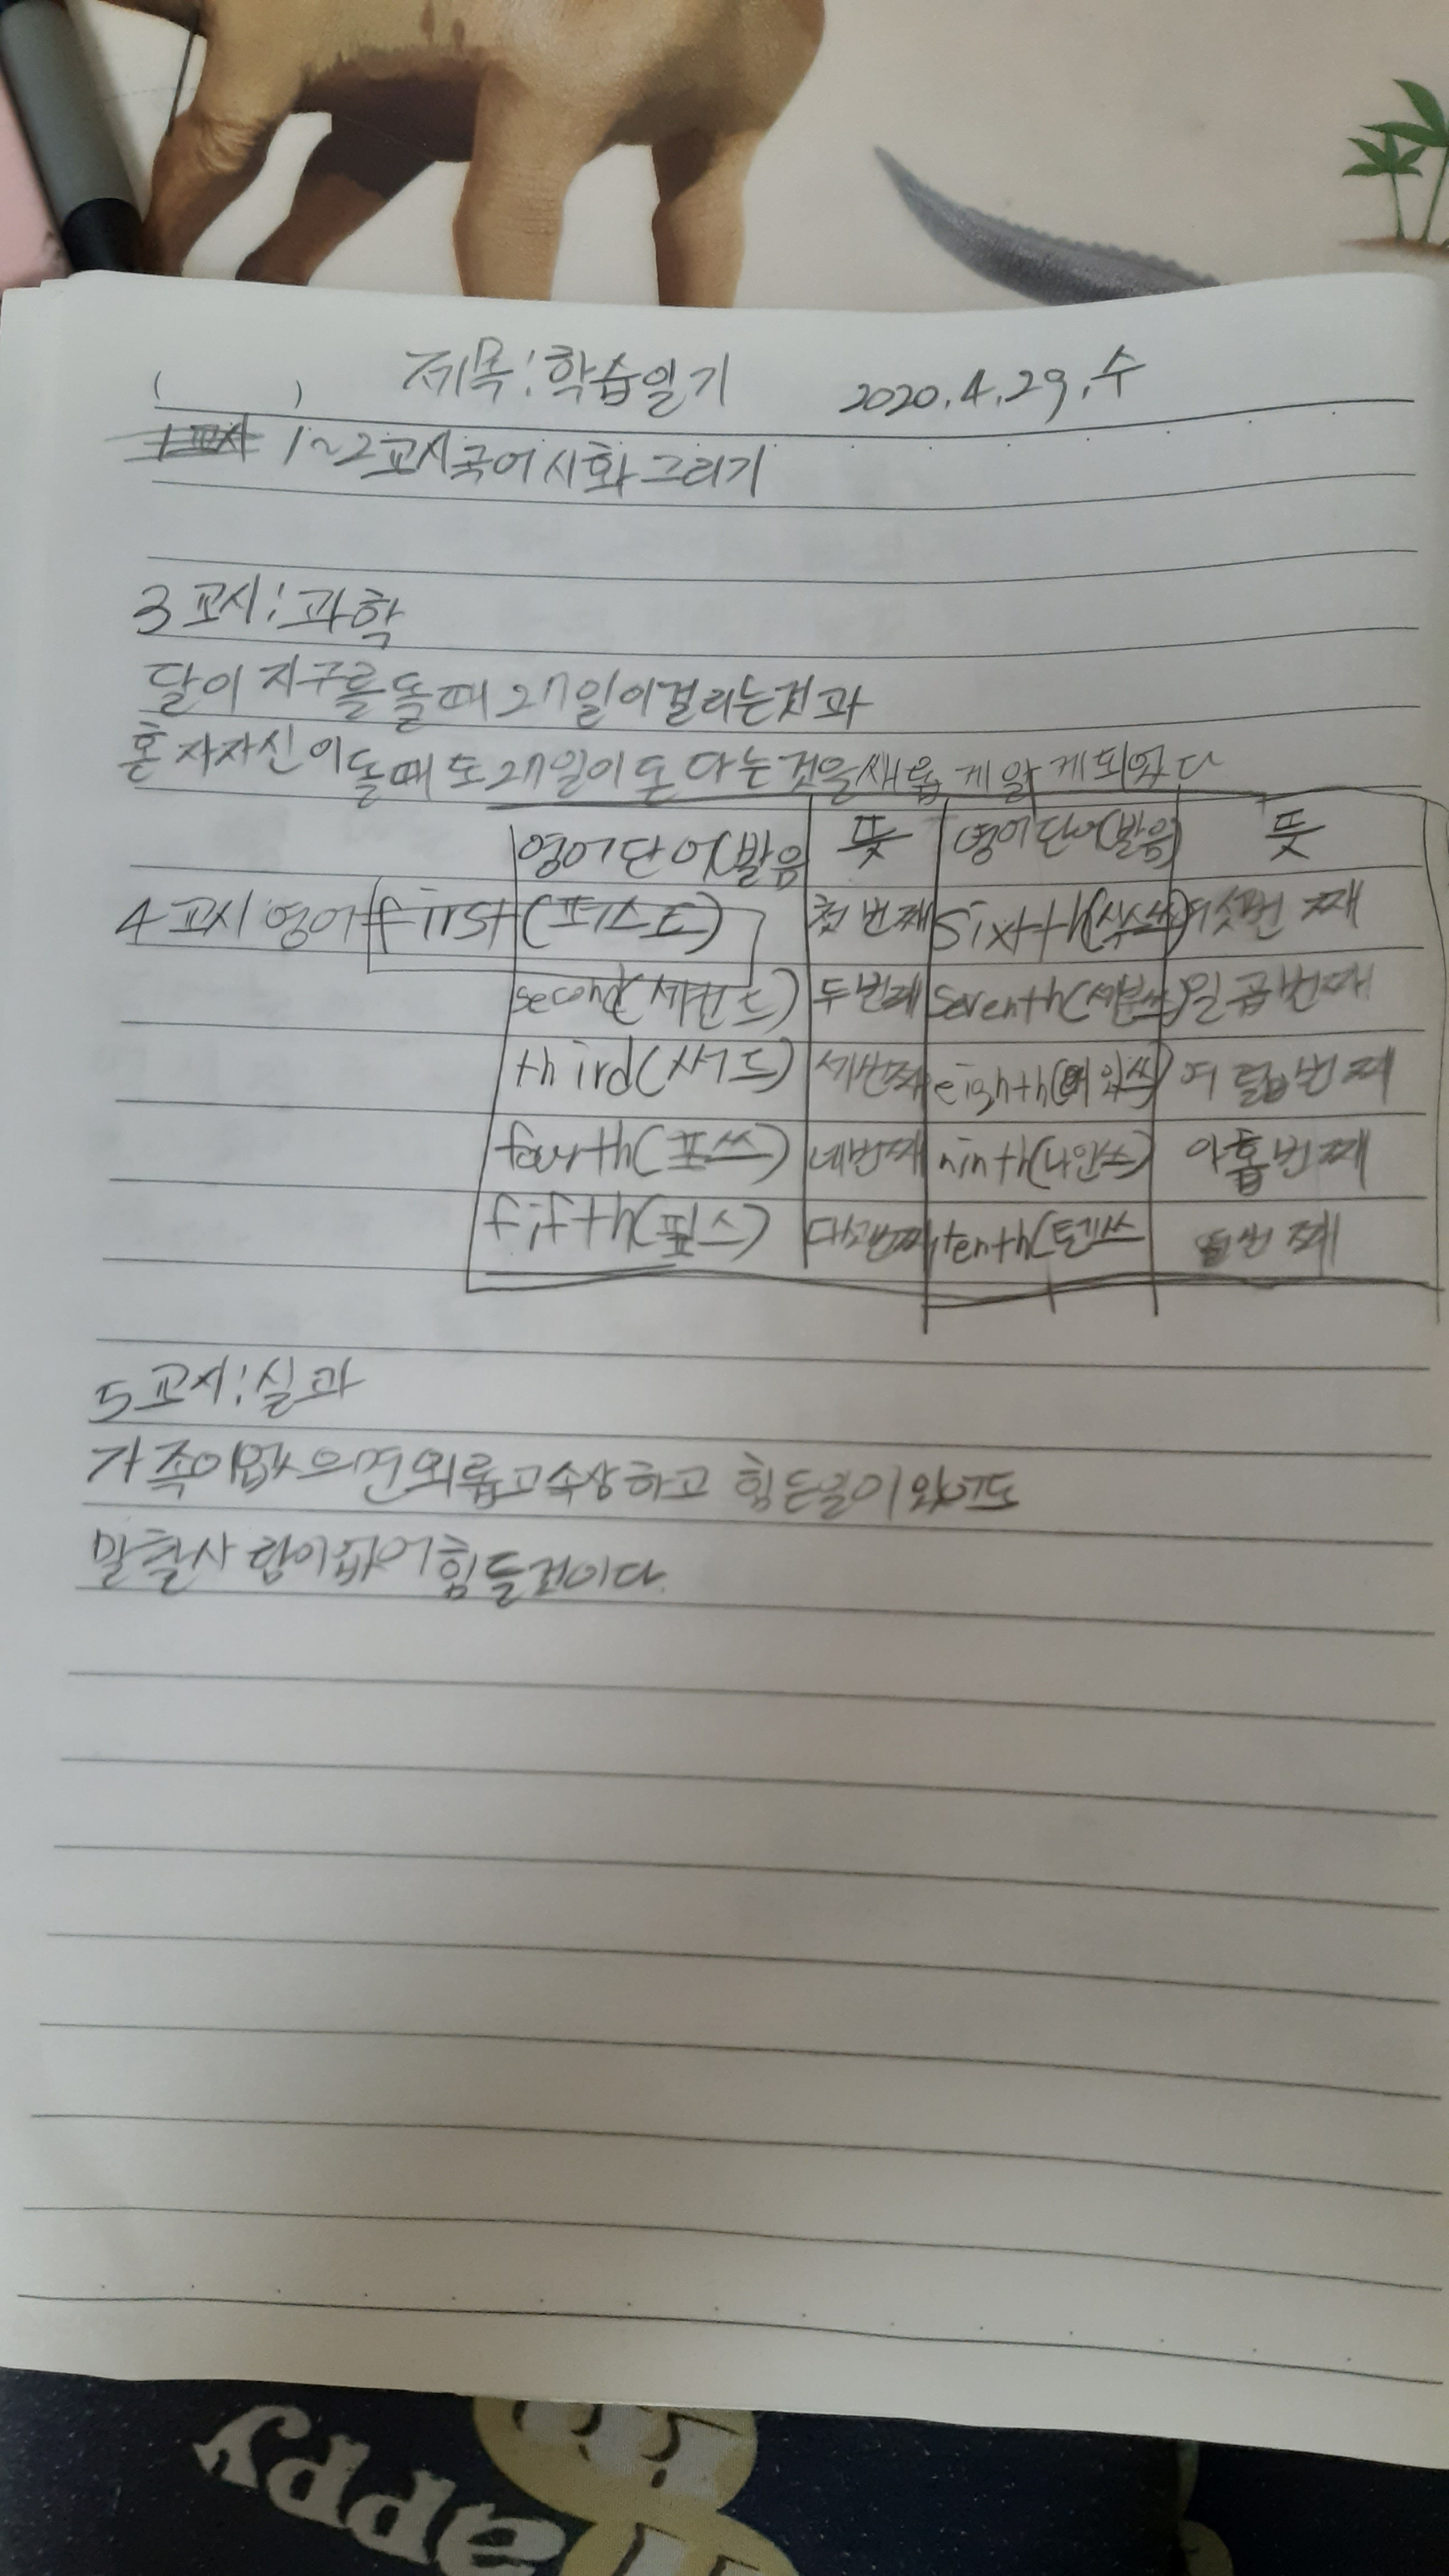 ( ) 제목:학습일기 2020.4.29.수
1~2교시국어시화그리기
3교시:과학
달이 지구를 돌때 27일이걸리는것과
혼자자신이돌때도27일이돈다는것을새롭게알게되었다
영어단어(발음 뜻 영어단어(발음) 뜻
4교시영어 first(퍼스트) 첫번째 Sixth 여섯번째
second(세컨드) 두번째 Seventh(세븐쓰)일곱번째
third(써드) 세번째 eighth 여덟번째
fourth(포쓰) 네번째 ninth(나인쓰) 아홉번째
fifth(핍스) 다섯번째 tenth(텐쓰 번째
5교시:실과
가족이없으면외롭고속상하고 힘든일이있어도
말할사람이없어힘들것이다.
Happy